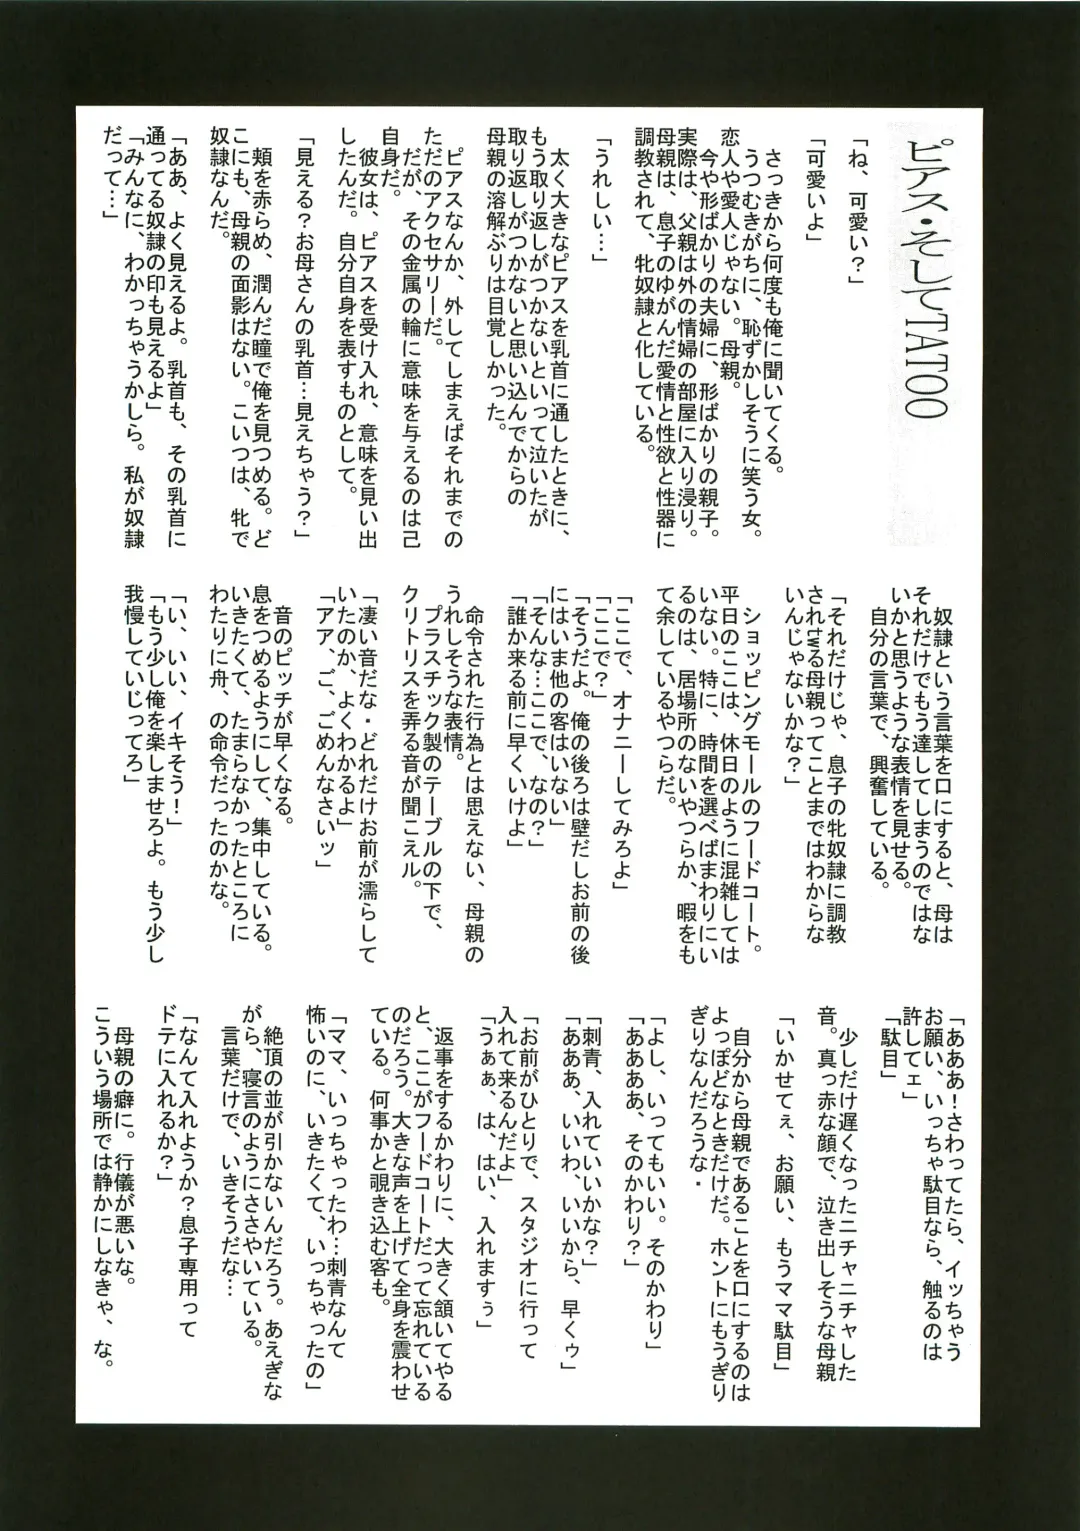 ピアス・そしてTATOO
「ね、可愛い？」
「可愛いよ」
さっきから何度も俺に聞いてくる。
うつむきがちに、恥ずかしそうに笑う女。
恋人や愛人じゃない。母親。
今や形ばかりの夫婦に、形ばかりの親子。
実際は、父親は外の情婦の部屋に入り浸り。
母親は、息子のゆがんだ愛情と性欲と性器に
調教されて、牝奴隷と化している。
「うれしい…」
太く大きなピアスを乳首に通したときに、
もう取り返しがつかないといって泣いたが、
取り返しがつかないと思い込んでからの
母親の溶解ぶりは目覚しかった。
ピアスなんか、外してしまえばそれまでの
ただのアクセサリーだ。
だが、その金属の輪に意味を与えるのは己
自身だ。
彼女は、ピアスを受け入れ、意味を見い出
したんだ。自分自身を表すものとして。
「見える？お母さんの乳首…見えちゃう？」
頬を赤らめ、潤んだ瞳で俺を見つめる。ど
こにも、母親の面影はない。こいつは、牝で
奴隷なんだ。
「ああ、よく見えるよ。乳首も、その乳首に
通ってる奴隷の印も見えるよ」
「みんなに、わかっちゃうかしら。私が奴隷
だって…」
奴隷という言葉を口にすると、母は
それだけでもう達してしまうのではな
いかと思うような表情を見せる。
自分の言葉で、興奮している。
「それだけじゃ、息子の牝奴隷に調教
されtwる母親ってことまではわからな
いんじゃないかな？」
ショッピングモールのフードコート。
平日のここは、休日のように混雑しては
いない。特に、時間を選べばまわりにい
るのは、居場所のないやつらか、暇をも
て余しているやつらだ。
「ここで、オナニーしてみろよ」
「ここで？」
「そうだよ。俺の後ろは壁だしお前の後
にはいま他の客はいない」
「そんな…ここで、なの？」
「誰か来る前に早くいけよ」
命令された行為とは思えない、母親の
うれしそうな表情。
プラスチック製のテーブルの下で、
クリトリスを弄る音が聞こエル。
「凄い音だな・どれだけお前が濡らして
いたのか、よくわかるよ」
「アア、ご、ごめんなさいッ」
音のピッチが早くなる。
息をつめるようにして、集中している。
いきたくて、たまらなかったところに
わたりに舟、の命令だったのかな。
「い、いい、イキそう！」
「もう少し俺を楽しませろよ。もう少し
我慢していじってろ」
「あああ！さわってたら、イッちゃう
お願い、いっちゃ駄目なら、触るのは
許してェ」
「駄目」
少しだけ遅くなったニチャニチャした
音。真っ赤な顔で、泣き出しそうな母親
「いかせてぇ、お願い、もうママ駄目」
自分から母親であることを口にするのは
よっぽどなときだけだ。ホントにもうぎり
ぎりなんだろうな・
「よし、いってもいい。そのかわり」
「ああああ、そのかわり？」
「刺青、入れていいかな？」
「あああ、いいわ、いいから、早くゥ」
「お前がひとりで、スタジオに行って
入れて来るんだよ」
「うぁぁ、は、はい、入れますぅ」
返事をするかわりに、大きく頷いてやる
と、ここがフードコートだって忘れている
のだろう。大きな声を上げて全身を震わせ
ている。何事かと覗き込む客も。
「ママ、いっちゃったわ…刺青なんて
怖いのに、いきたくて、いっちゃったの」
絶頂の並が引かないんだろう。あえぎな
がら、寝言のようにささやいている。
言葉だけで、いきそうだな…
「なんて入れようか？息子専用って
ドテに入れるか？」
母親の癖に。行儀が悪いな。
こういう場所では静かにしなきゃ、な。